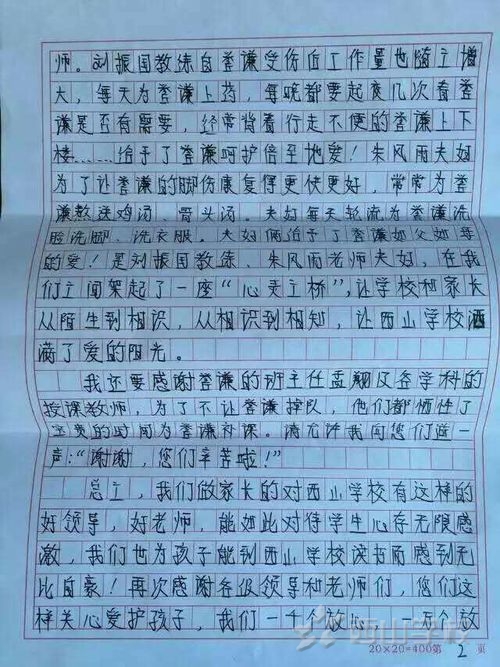 师。刘振国教练自誉谦受伤后工作量也随之增
大，每天为誉谦上药，每晚都要起夜几次看誉
谦是否有需要，经常背着行走不便的誉谦上下
楼……给予了誉谦呵护倍至地爱！朱风雨夫妇
为了让誉谦的脚伤康复得更快更好，常常为誉
谦熬送鸡汤、骨头汤。夫妇每天轮流为誉谦洗
脸洗脚、洗衣服。夫妇俩给予了誉谦如父如母
的爱！是刘振国教练、朱风雨老师夫妇，在我
们之间架起了一座“心灵之桥”，让学校和家长
从陌生到相识，从相识到相知，让西山学校洒
满了爱的阳光。
我还要感谢誉谦的班主任孟翔及各学科的
授课教师，为了不让誉谦掉队，他们都牺牲了
宝贵的时间为誉谦补课。请允许我向您们道一
声：“谢谢，您们辛苦啦！”
总之，我们做家长的对西山学校有这样的
好领导，好老师，能如此对待学生心存无限感
激，我们也为孩子能到西山学校读书而感到无
比自豪！再次感谢各级领导和老师们，您们这
样关心爱护孩子，我们一千个放心，一万个放
西山学校
20×20=400第 2 页